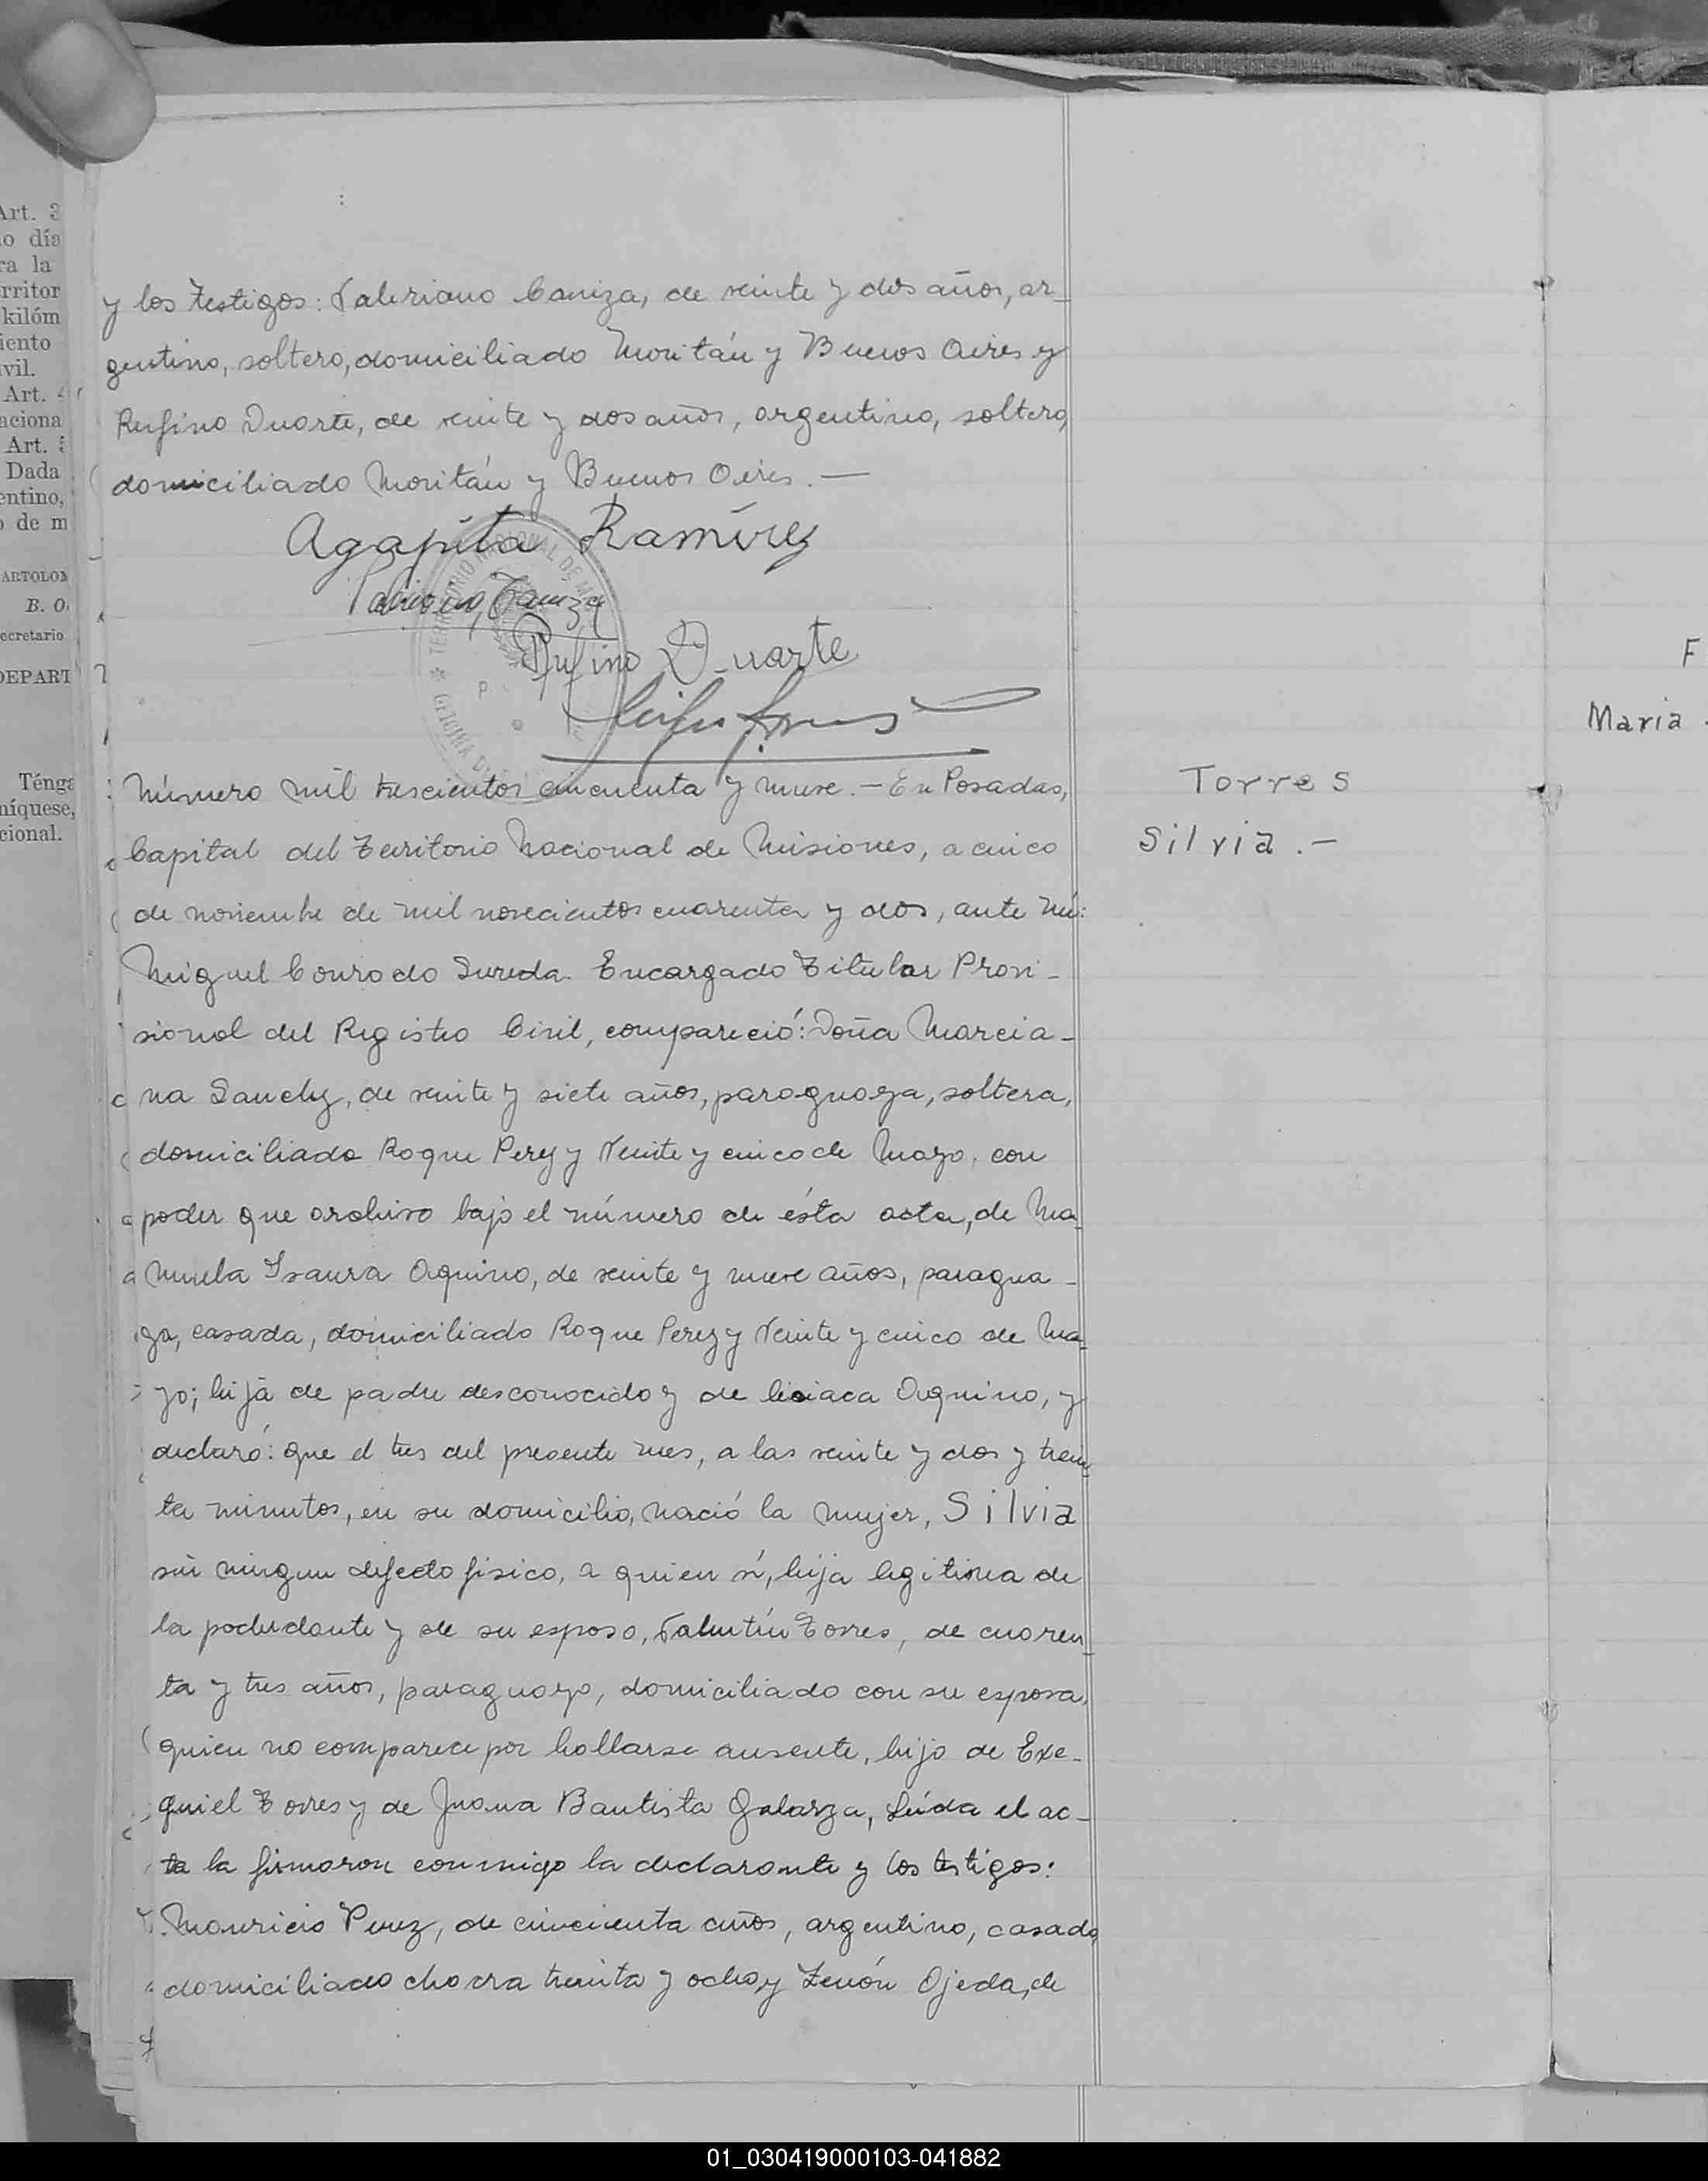 Art. 3
o día
ra la
rritor
kilóm
iento
ivil.
Art. 4
aciona
Art. 5
Dada
entino,
o de m
ARTOLOM
B. O.
ecretario
DEPART
Ténga
níquese,
cional.
y los testigos: Valeriano Caniza, de veinte y dos años, ar-
gentino, soltero, domiciliado Moritán y Buenos Aires y
Rufino Duarte, de veinte y dos años, argentino, soltero,
domiciliado Moritán y Buenos Aires. —
Agapita Ramírez
Valeriano Caniza
Rufino Duarte
Número mil trescientos cincuenta y nueve. — En Posadas,
Capital del Territorio Nacional de Misiones, a cinco
de noviembre de mil novecientos cuarenta y dos, ante mí:
Miguel Conrado Sureda. Encargado Titular Provi-
sional del Registro Civil, compareció: Doña Marcia-
na Sanchez, de veinte y siete años, paraguaya, soltera,
domiciliada Roque Perez y Veinte y cinco de Mayo, con
poder que archivo bajo el número de ésta acta, de Ma-
nuela Isaura Aquino, de veinte y nueve años, paragua-
ya, casada, domiciliada Roque Perez y Veinte y cinco de Ma-
yo; hija de padre desconocido y de Aquino, y
declaró: que el tres del presente mes, a las veinte y dos y trein-
ta minutos, en su domicilio, nació la mujer, Silvia
sin ningun defecto físico, a quien ví, hija legitima de
la poderdante y de su esposo, Valentín Torres, de cuaren-
ta y tres años, paraguayo, domiciliado con su esposa,
quien no comparece por hallarse ausente, hijo de Exe-
quiel Torres y de Juana Bautista Galarza, Leída el ac-
ta la firmaron conmigo la declarante y los testigos:
Mauricio Perez, de cincuenta años, argentino, casado
domiciliado chacra treinta y ocho y Zenón Ojeda, de
Torres
Silvia. —
F
Maria
01_030419000103-041882